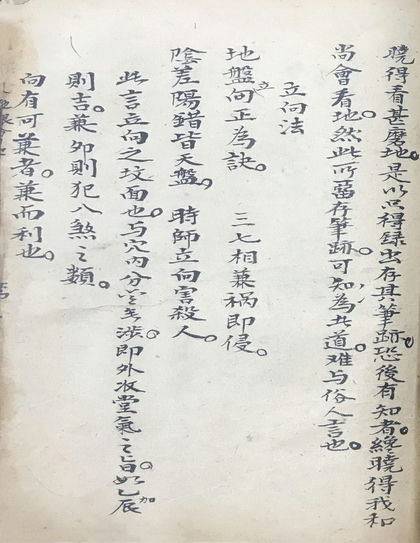 曉得看甚麽地。是以只得録出存其筆跡恐後有知者。終曉得我和
尚會看地。然此所畱存筆跡。可知為此道。难与俗人言也。
立向法
地盤立向正為訣。 三七相兼禍即侵。
陰差陽錯皆天盤。 時師立向害殺人。
此言立向之坟面也。与穴内分金無涉。即外收堂氣之旨。如乙加辰
則吉。兼卯則犯八煞之類。
向有可兼者。兼而利也。